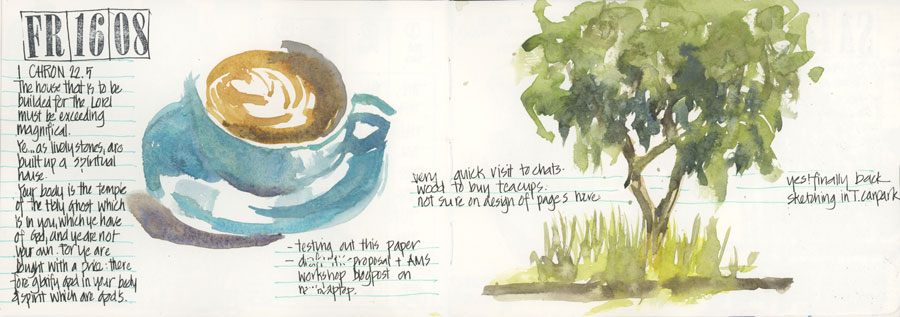 FR 16 08
1 CHRON 22.5
The house that is to be
builded for the Lord
must be exceeding
magnifical.
Ye... as lively stones, are
built up a spiritual
house.
Your body is the temple
of the Holy Ghost which
is in you, which ye have
of God, and ye are not
your own. For ye are
bought with a price: there
fore glorify God in your body
& spirit which are God's.
- testing out this paper
- proposal + AMS
workshop blogpost on
laptop.
very quick visit to chats.
wood to buy teacups.
not sure on design of pages here
yes! finally back
sketching in